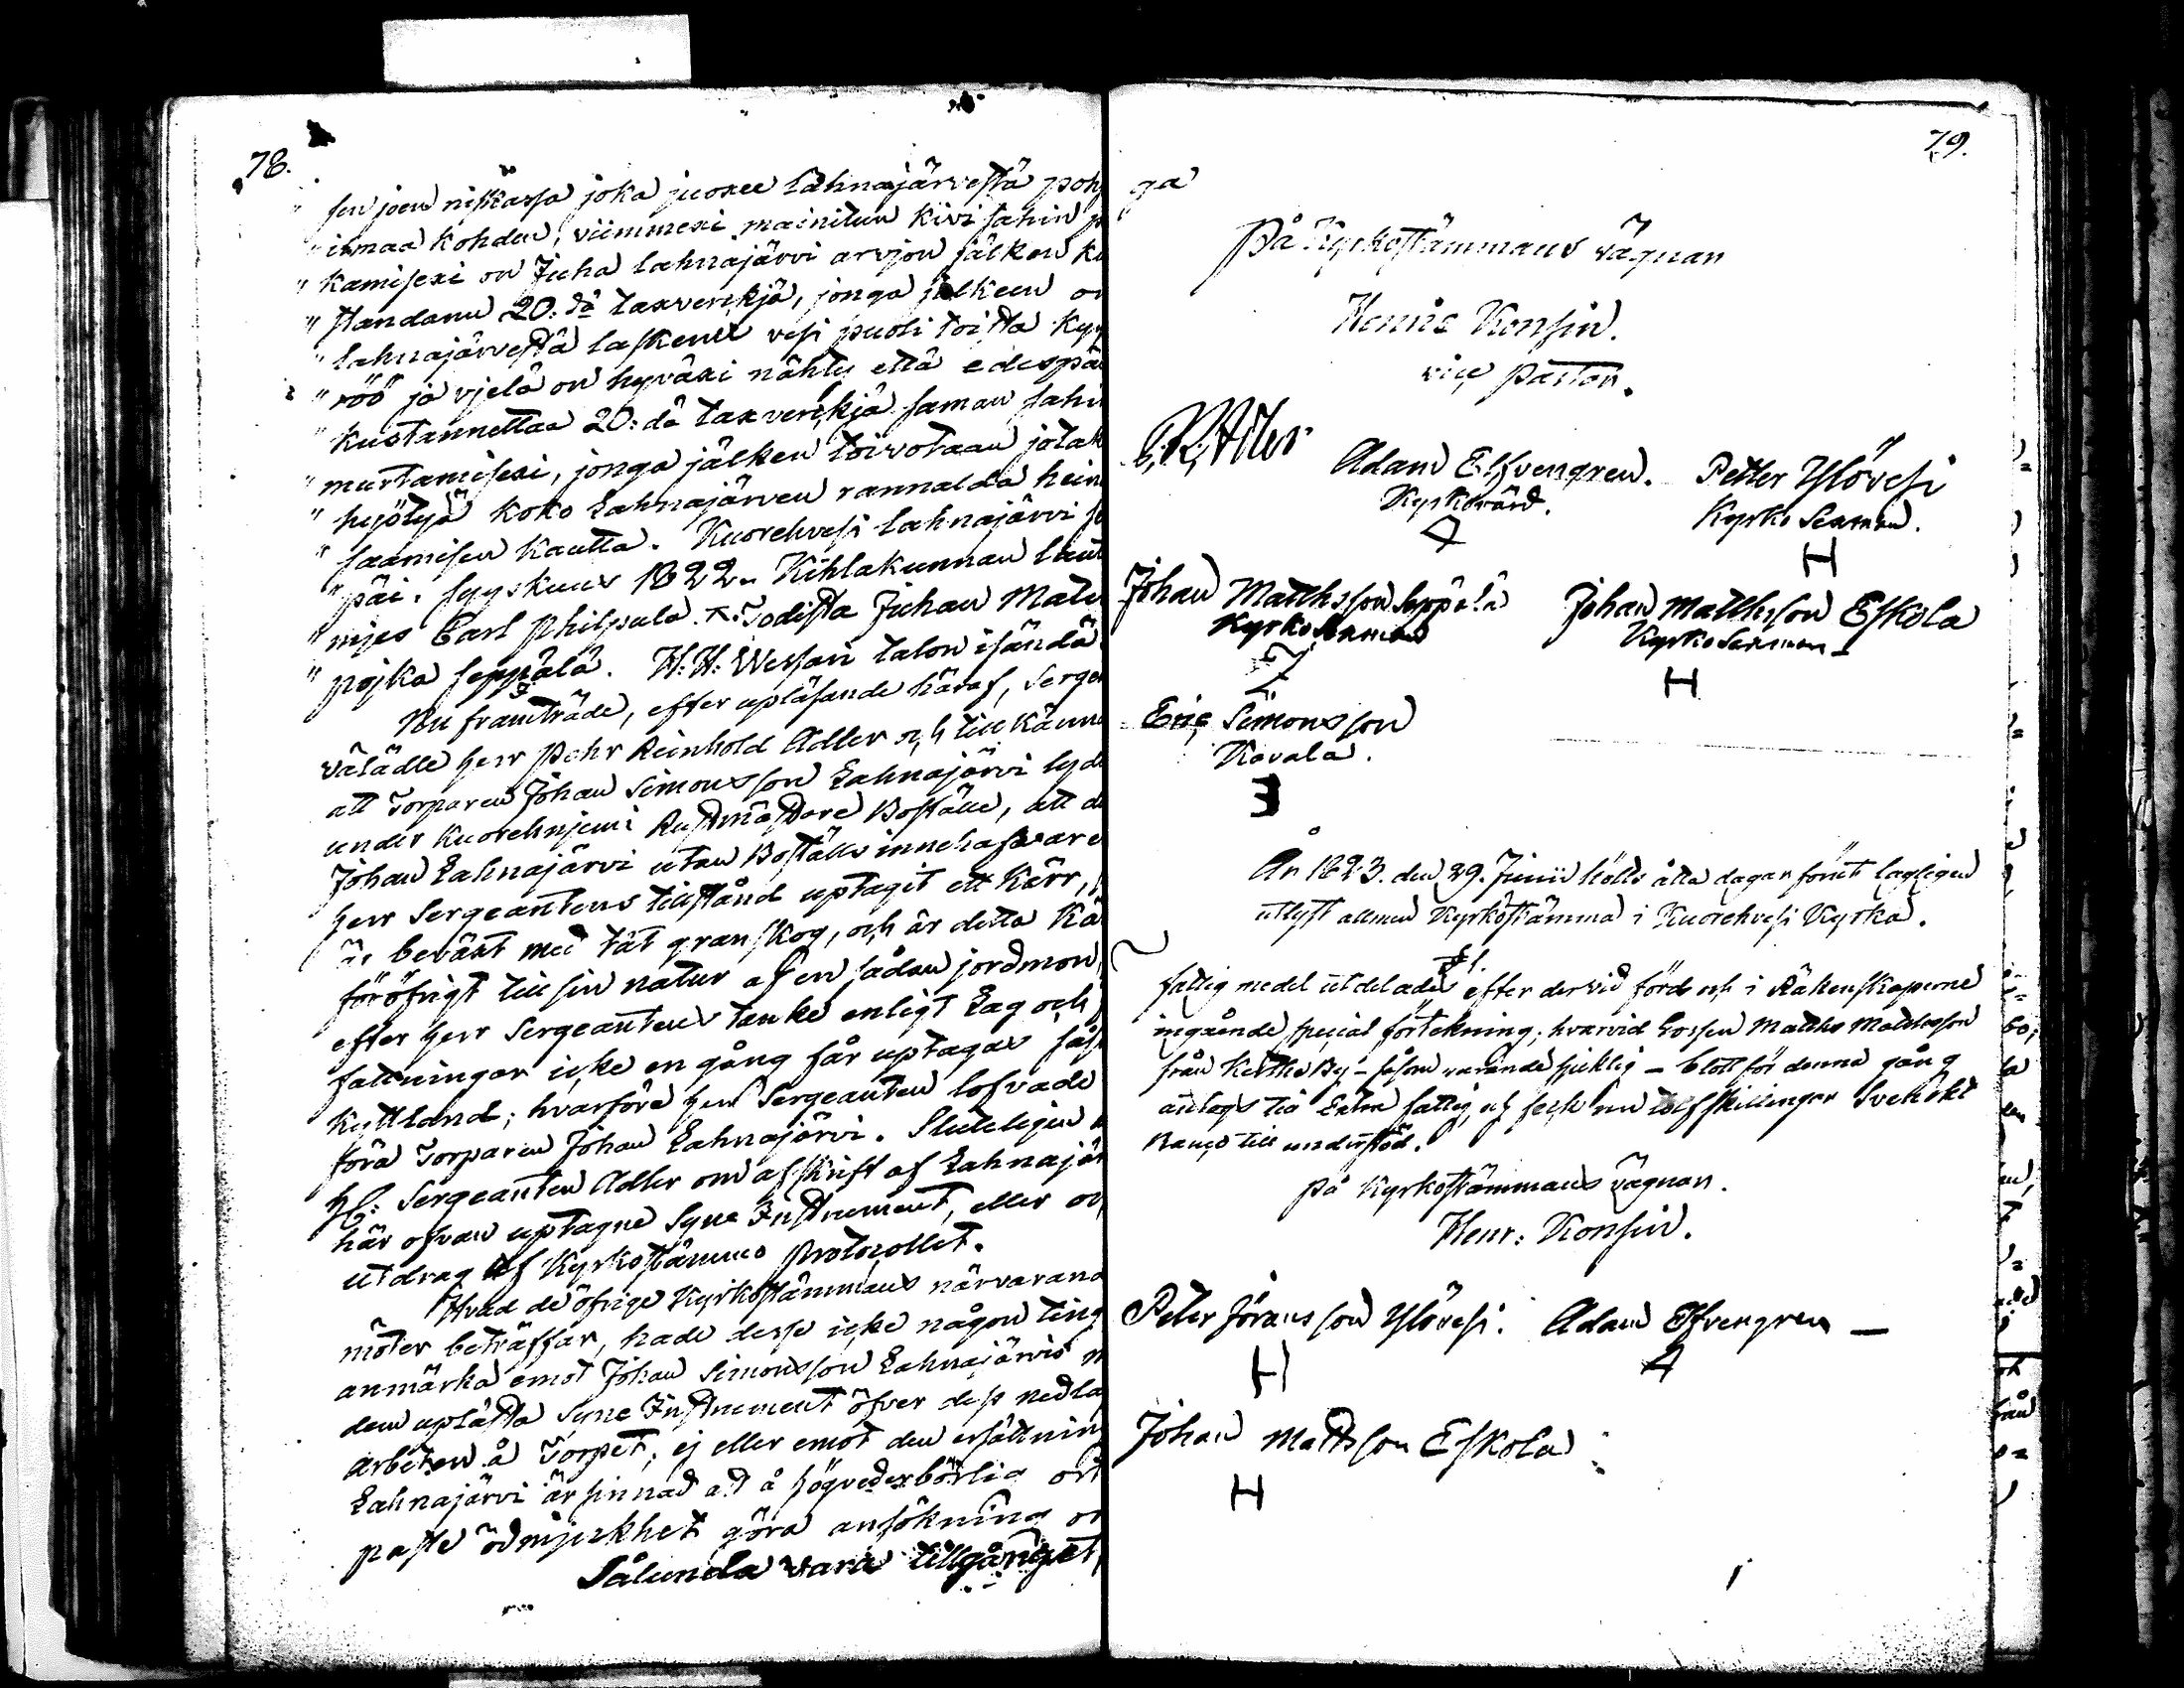 78.
" sen joen niskassa joka juoxee Lahnajärvestä poh
" jsmaa kohden, viimmexi mainitun kivi sahin p
" kamisexi on Juha Lahnajärvi arvjon jälken ku
" standanu 20:dä taxverikjä, jonga jälkeen on
" Lahnajärvestä laskenut vesi puoli toista kyy
" röö ja vjelä on hyväxi nähty että edespäi
" kustannettaa 20:dä taxverikjä saman sahin
" murtamisexi, jonga jälken toivotaan jotak
" hyötyä koko Lahnajärven rannalda hein
" saamisen kautta. Kuorehvesi Lahnajärvi
" päi. syyskuus 1822. Kihlakunnan laut
" mjes Carl Philpula. Todista Juhan Matin
" pojka Seppälä. H:H: Wessari talon isändä
Nu framträdde, efter upläsande häraf, Serge
välädle herr Pehr Reinhold Adler och tillkänna
att Torparen Johan Simonsson Lahnajärvi lyd
under Kuorehnjemi Rustmästare Boställe, att d
Johan Lahnajärvi utan Boställs innehafvare
herr Sergeantens tillstånd uptagit ett Kärr,
är beväxt med tät granskog, och är detta Kä
föröfrigt till sin natur af en sådan jordmon,
efter herr Sergeantens tanke enligt Lag och
fattningar icke en gång får uptagas så
Kyttland; hvarföre herr Sergeanten lofvade
föra Torparen Johan Lahnajärvi. Sluteligen
hr: Sergeanten Adler om afskrift af Lahnajär
här ofvan uptagne Syne Instrument, eller
utdrag af Kyrkostämmo Protocollet.
Hvad de öfrige Kyrkostämmans närvarand
möter beträffar, hade desse icke någon ting
anmärka emot Johan Simonsson Lahnajärvis
dem uplästa Syne Instrument öfver dess nedla
arbeten å Torpet; ej eller emot den ersättning
Lahnajärvi är sinnad att å högvederbörlig ort
paste ödmjukhet göra ansökning om
Sålunda vara tillgånget,
79.
ga
På Kyrkostämmans vägnar
Henric Konsin.
vice Pastor.
P. R. Adler
Adam Elfvengren. Petter Ylövesi
Kyrkovärd. Kyrko Sexman.
A H
Johan Matthsson Seppälä Johan Matthsson Eskola
Kyrko Sexman Kyrko Sexman
H
Eric Simonsson
Kavala.
År 1823. den 29. Junii hölls åtta dagar förut lagligen
utlyst allmen Kyrkostämma i Kuorehvesi Kyrka.
§ 1.
Fattig medel utdelades efter dervid förd och i Räkenskaperne
ingående special förtekning; hvarvid Gossen Matths Matthsson
från Kerthe By - såsom varande sjuklig - blott för denna gång
antogs till Extra fattig, och feck nu tolf skillingar Svenskt
Banco till understöd.
på Kyrkostämmans vägnar.
Henr: Konsin.
Peter Jöransson Ylövesi. Adam Elfvengren
H A
Johan Mattsson Eskola
H